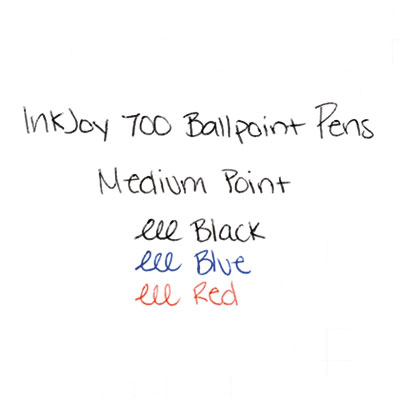 InkJoy 700 Ballpoint Pens
Medium Point
eee Black
eee Blue
eee Red